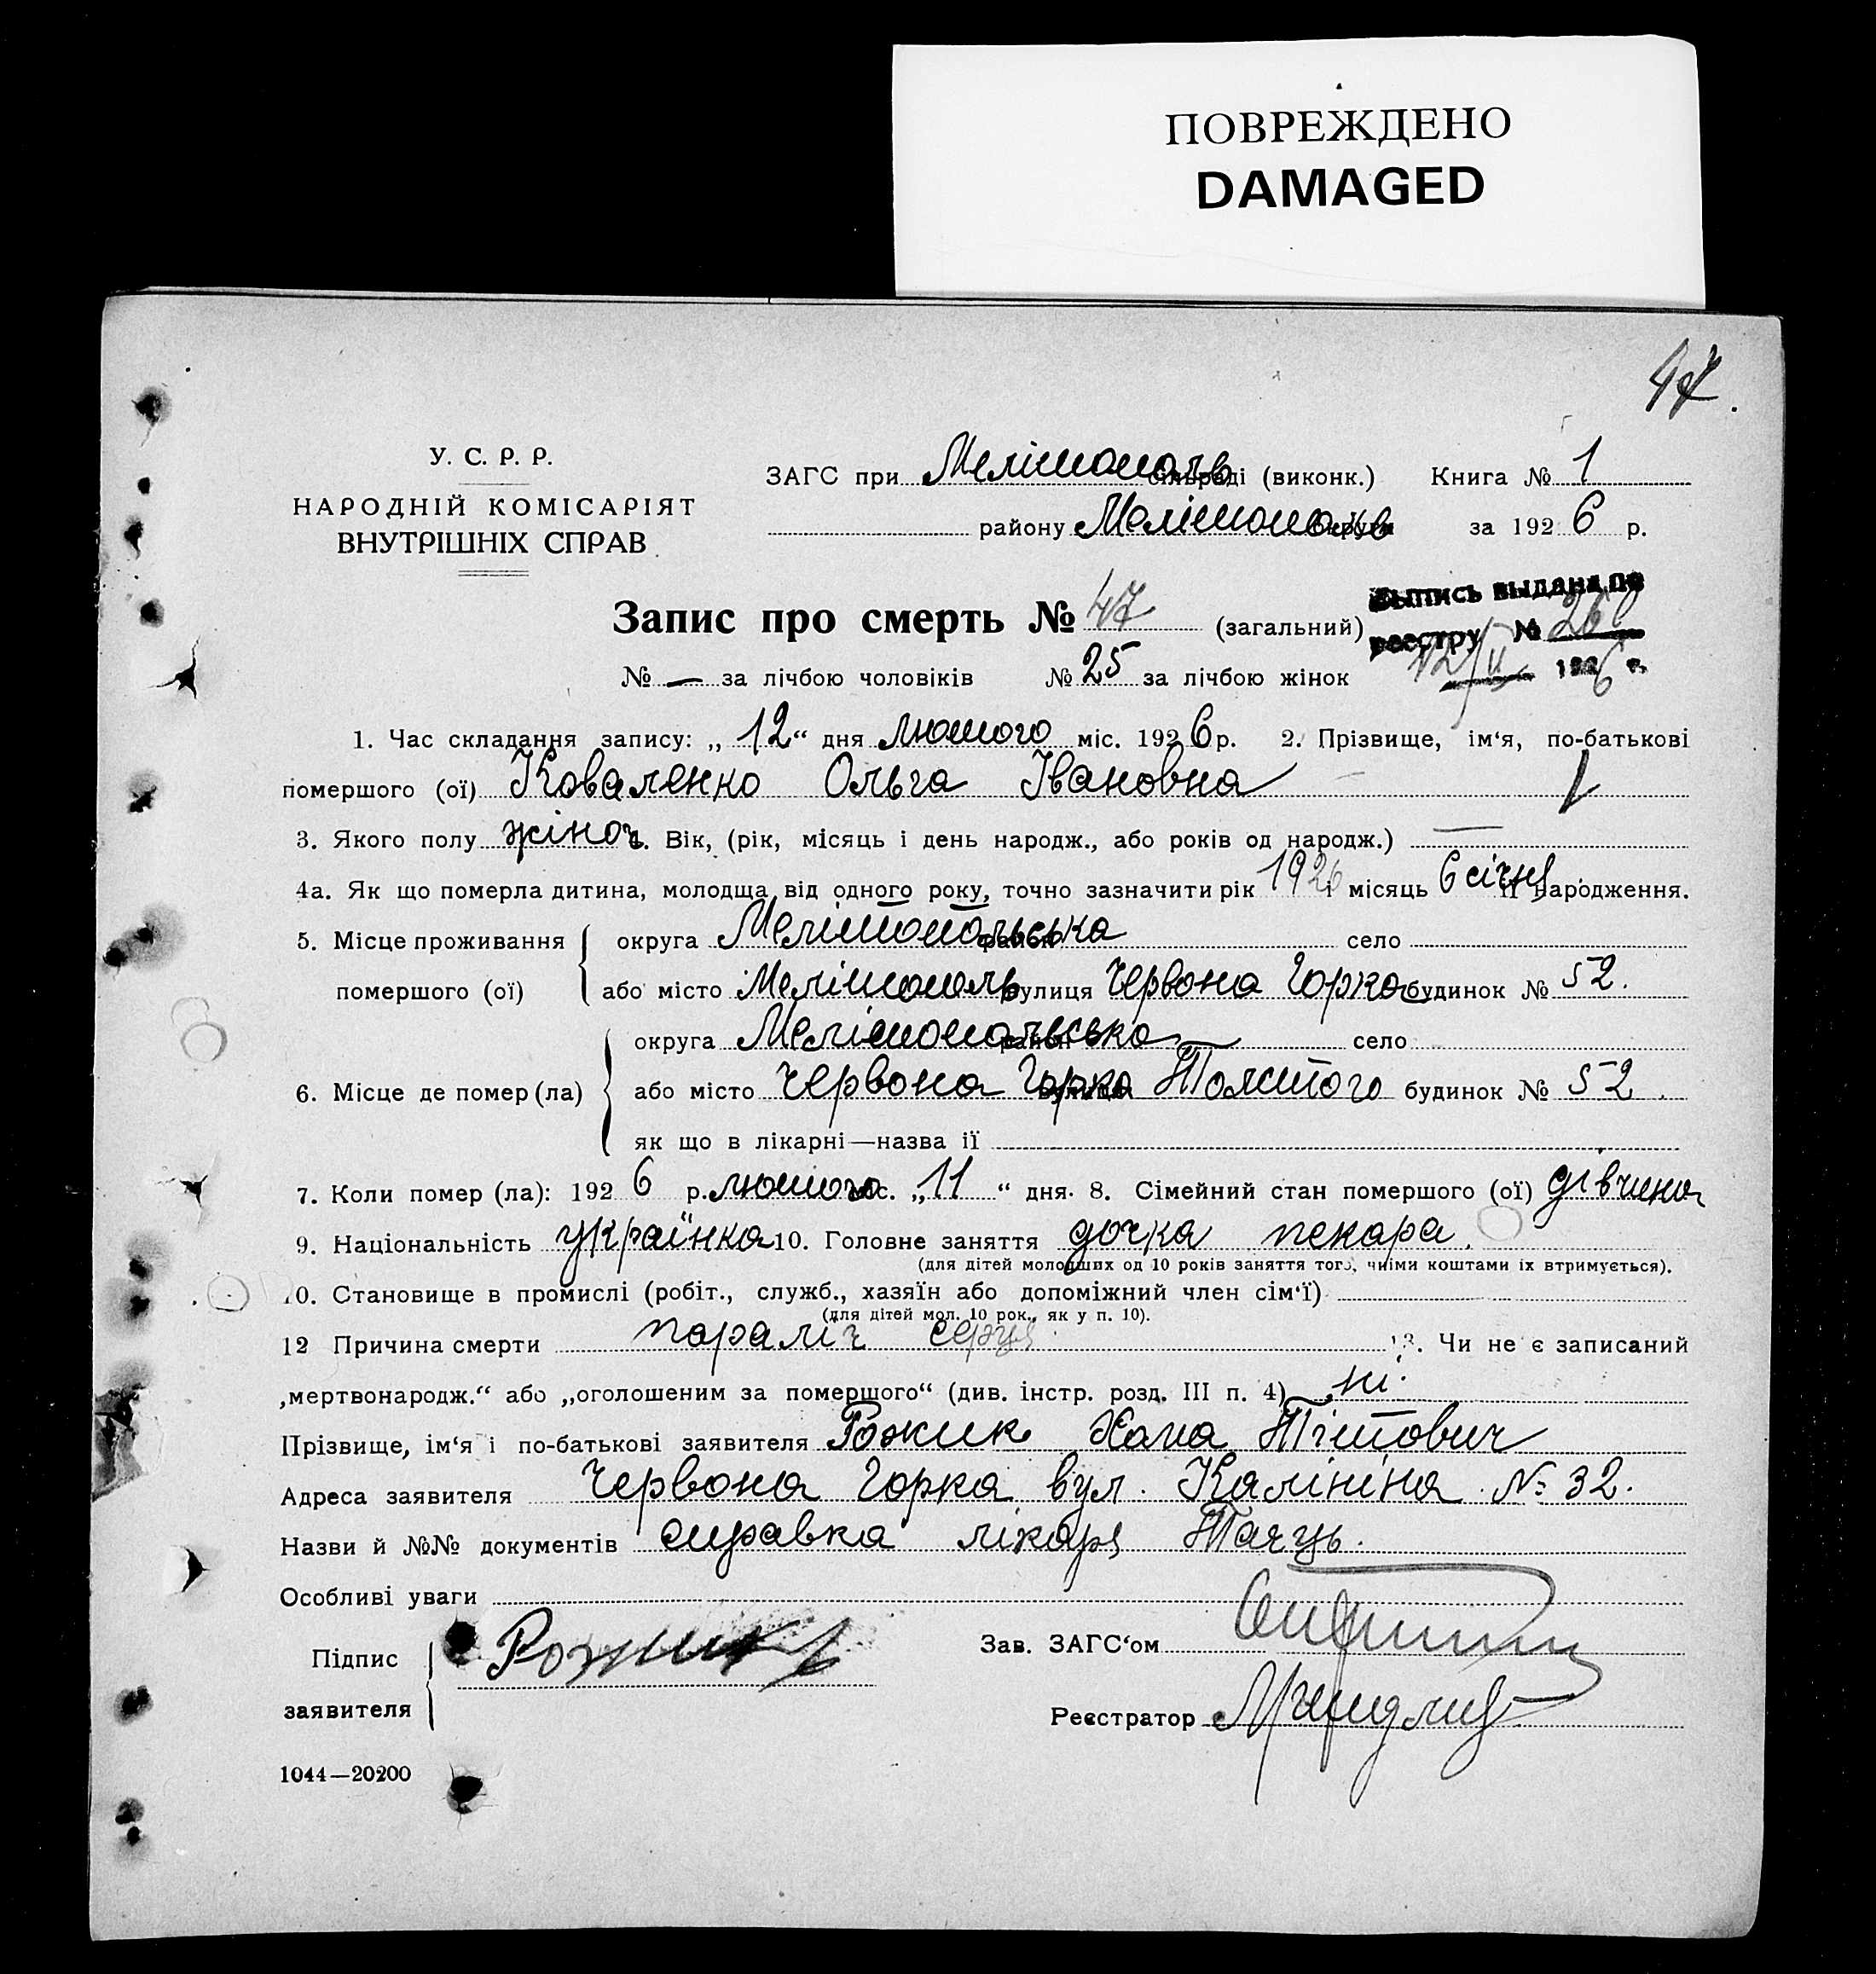 ПОВРЕЖДЕНО
DAMAGED
47.
У. С. Р. Р.
НАРОДНІЙ КОМІСАРІЯТ
ВНУТРІШНІХ СПРАВ
ЗАГС при Мелітополь сільраді (виконк.) Книга № 1
району Мелітополь округи за 1926 р.
Запис про смерть № 47 (загальний)
Выпись выдана по
реестру № 26
12/II 1926 г.
№ — за лічбою чоловіків № 25 за лічбою жінок
1. Час складання запису: „12“ дня лютого міс. 1926 р. 2. Прізвище, ім‘я, по-батькові
помершого (ої) Коваленко Ольга Івановна
3. Якого полу жіноч. 4. Вік, (рік, місяць і день народж., або років од народж.) —
4а. Як що померла дитина, молодща від одного року, точно зазначити рік 1926 і місяць 6 січня її народження.
5. Місце проживання помершого (ої)
округа Мелітопольська район село
або місто Мелітополь вулиця Червона Горка будинок № 52.
6. Місце де помер (ла)
округа Мелітопольська район село
або місто Червона Горка вулиця Толстого будинок № 52.
як що в лікарні—назва ії
7. Коли помер (ла): 1926 р. лютого міс. „11“ дня. 8. Сімейний стан помершого (ої) дівчина
9. Національність українка 10. Головне заняття дочка пекара.
(для дітей молодших од 10 років заняття того, чиїми коштами їх втримується).
10. Становище в промислі (робіт., служб., хазяїн або допоміжний член сім‘ї)
(для дітей мол. 10 рок., як у п. 10).
12 Причина смерти параліч серця 13. Чи не є записаний
„мертвонародж.“ або „оголошеним за помершого“ (див. інстр. розд. III п. 4) ні.
Прізвище, ім‘я і по-батькові заявителя Рожик Тітович
Адреса заявителя Червона Горка вул. Калініна № 32.
Назви й №№ документів справка лікаря
Особливі уваги
Підпис заявителя Рожик
Зав. ЗАГС‘ом
Реєстратор
1044—20200